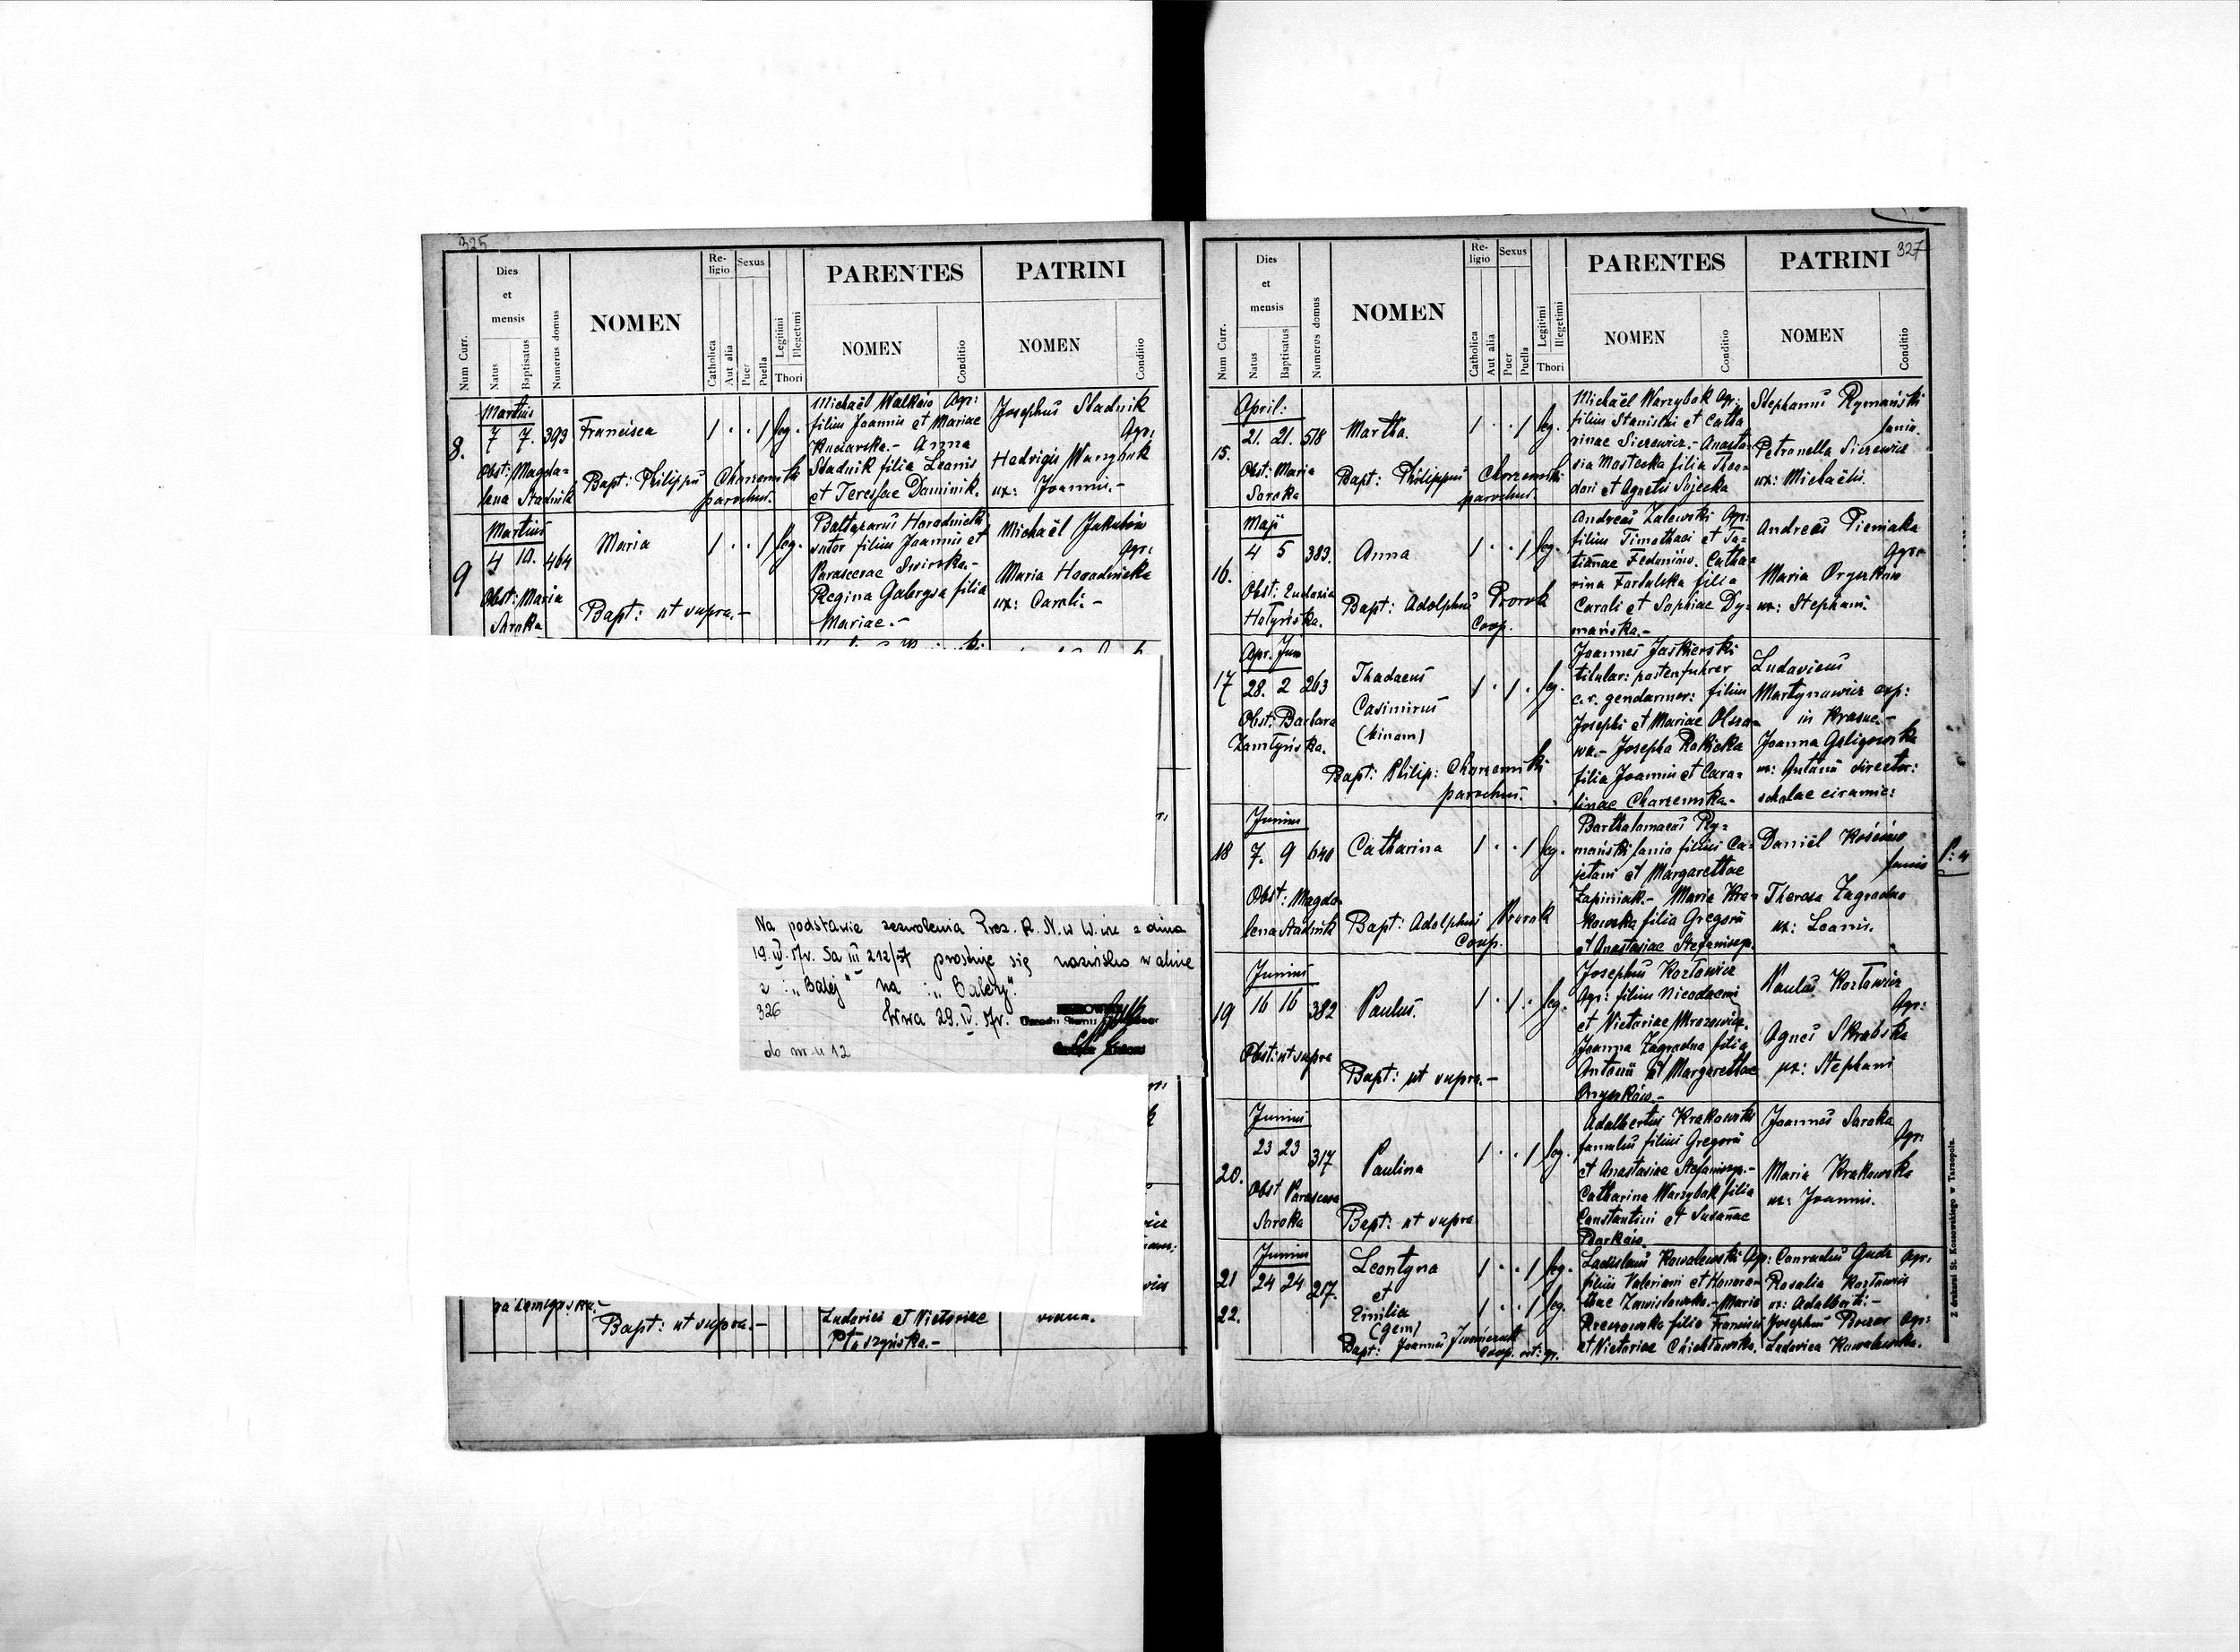 325
Num Curr.
Dies
et
mensis
Natus
Baptisatus
Numerus domus
NOMEN
Re-
ligio
Catholica
Aut alia
Sexus
Puer
Puella
Legitimi
Illegetimi
Thori
PARENTES
NOMEN
Conditio
PATRINI
NOMEN
Conditio
8.
Martius
7 7. 393
Obst: Magda=
lena Stadnik
Francisca
Bapt: Philippus Chorzemski
parochus.
1 . . 1 leg.
Michaël Walków Agr:
filius Joannis et Mariae
Anna
Stadnik filia Leonis
et Teressae Dominik.
Josephus Stadnik
Agr:
Hedvigis
ux: Joannis.-
9
Martius
4 10. 464
Obst: Maria
Soroka
Maria
Bapt: ut supra.-
1 . . 1 leg.
Baltazarus Horodnicki
sutor filius Joannis et
Parascevae Swirska.-
Regina filia
Mariae.-
Michaël Jakubiw
Agr:
Maria Horodnicka
ux: Caroli.-
Na podstawie zezwolenia Prez. R. N. w W. wie z dnia
19.IV.57r. Sa III 212/57 prostuje się nazwisko w akcie
z: "Balej" na: "Balezy".
326 W-wa 29.IV.57r.
do nr-u 12
Bapt: ut supra.-
Ludovici et Victoriae
Ptaszyńska.-
327
Num Curr.
Dies
et
mensis
Natus
Baptisatus
Numerus domus
NOMEN
Re-
ligio
Catholica
Aut alia
Sexus
Puer
Puella
Legitimi
Illegetimi
Thori
PARENTES
NOMEN
Conditio
PATRINI
NOMEN
Conditio
15.
April:
21. 21. 518
Obst: Maria
Soroka
Martha.
Bapt: Philippus Chorzemski
parochus.
1 . . 1 leg.
Michaël Warzybok Agr:
filius Stanislai et Catha
rinae Sierewicz.- Anasta=
sia Mostecka filia Theo=
dori et Agnetis Sajecka
Stephanus Rymański
lanio.
Petronella Sierewicz
ux: Michaëlis.
16.
Maji
4 5 383.
Obst: Eudoxia
Hołyńska.
Anna
Bapt: Adolphus Prorok
Coop.
1 . . 1 leg.
Andreas Zalewski Agr:
filius Timothaei et Ta=
tianae Feduniów. Catha=
rina filia
Caroli et Sophiae Dy=
mańska.-
Andreas Pieniaka
Agr:
Maria Oryszków
ux: Stephani.
17
Apr. Jun
28. 2 263
Obst: Barbara
Zamłyńska.
Thadaeus
Casimirus
(binom)
Bapt: Philip: Chorzemski
parochus.
1 . 1 . leg.
Joannes Jaskierski
titular: postenführer
c.r. gendarmer: filius
Josephi et Mariae Olszo=
wa.- Josepha Rokicka
filia Joannis et Caro=
linae Chorzemska.-
Ludovicus
Martynowicz exp:
in Krasne.-
Joanna Galigowska
ux: Antonii director:
scholae ciramic:
18
Junius
7. 9 640
Obst: Magda
lena Stadnik
Catharina
Bapt: Adolphus Prorok
Coop.
1 . . 1 leg.
Bartholomaeus Ry=
mański lanio filius Ca=
jetani et Margarethae
Łapiniak.- Maria Kra=
kowska filia Gregorii
et Anastasiae
Daniël Kościów
lanio
Theresa Zagrodna
ux: Leonis.
19
Junius
16 16 382
Obst: ut supra
Paulus.
Bapt: ut supra.-
1 . 1 . leg.
Josephus Kozłowicz
Agr: filius Nicodaemi
et Victoriae Mrozowicz.
Joanna Zagrodna filia
Antonii et Margarethae
Oryszków.-
Paulus Kozłowicz
Agr:
Agnes Skrabska
ux: Stephani
20.
Junius
23 23 317
Obst Parasceva
Soroka
Paulina
Bapt: ut supra
1 . . 1 leg.
Adalbertus Krakowski
famulus filius Gregorii
et Anastasiae
Catharina Warzybok filia
Constantini et Susanae
Borków.
Joannes Soroka
Agr:
Maria Krakowska
ux: Joannis.
21
22.
Junius
24 24 217.
Leontyna
et
Emilia
(gem)
Bapt: Joannes
Coop. rit: gr.
1 . . 1 leg.
1 . . 1 leg.
Ladislaus Kowalewski Agr:
filius Valeriani et Honora=
thae Zawisłowska.- Maria
filia Francisci
et Victoriae
Conradus Gudz Agr:
Rosalia Kozłowicz
ux: Adalberti.-
Josephus Agr:
Ludovica Kowalewska.
Z drukarni St. Kossowskiego w Tarnopolu.